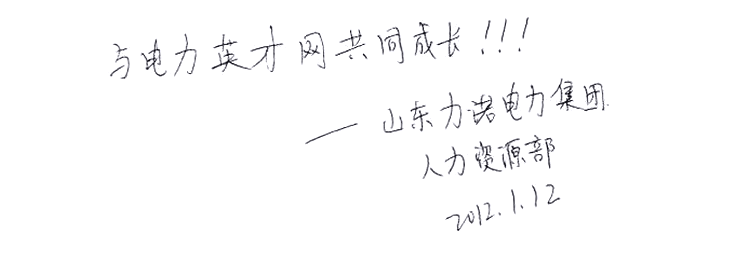 与电力英才网共同成长!!!
—— 山东力诺电力集团
人力资源部
2012.1.12